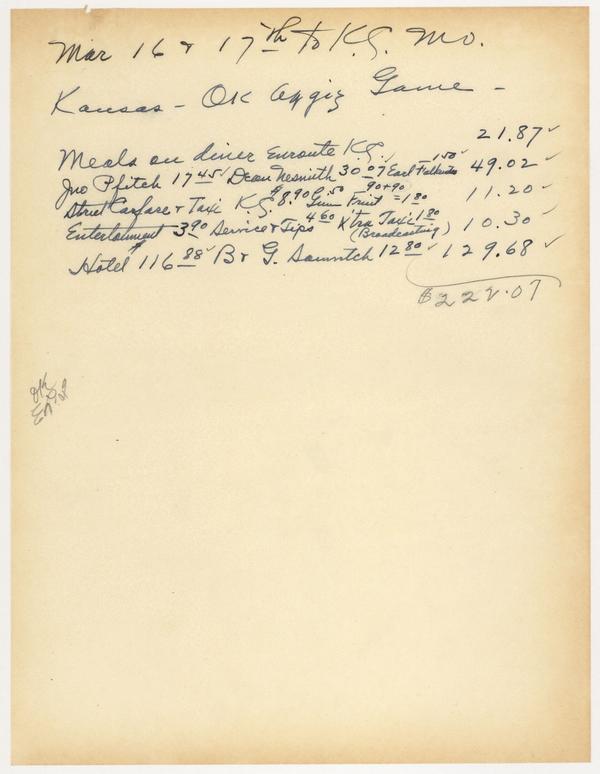 Mar 16 & 17th to K.C. Mo.
Kansas - OK Aggie Game -
Meals on diner Enroute K.C. 21.87 ✓
Jno Pfitch 17 45 ✓ Dean Nesmith 30 07 Earl Falkenstien 1 50 ✓ 49.02 ✓
Street Carfare & Taxi K.C. $8.90 P. .50 Gum Fruit 90 + 90 = 1 80 11.20 ✓
Entertainment 3 90 Service & Tips 4 60 Xtra Taxi 1 80 (Broadcasting) 10.30 ✓
Hotel $116 88 ✓ B & G. Sandwitch 12 80 ✓ 129.68 ✓
$222.07
OK